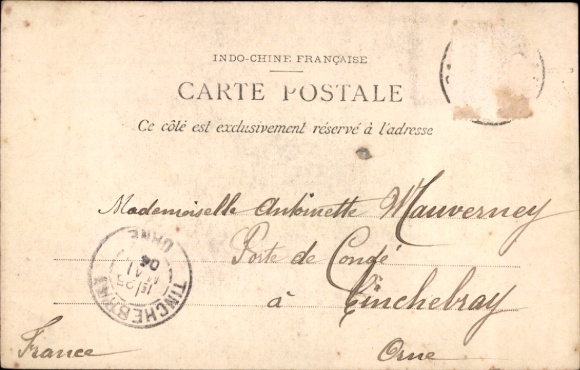 INDO-CHINE FRANÇAISE
CARTE POSTALE
Ce côté est exclusivement réservé à l'adresse
Mademoiselle Antoinette Mauverney
Porte de Condé
à Tinchebray
France
Orne
TINCHEBRAY
ORNE